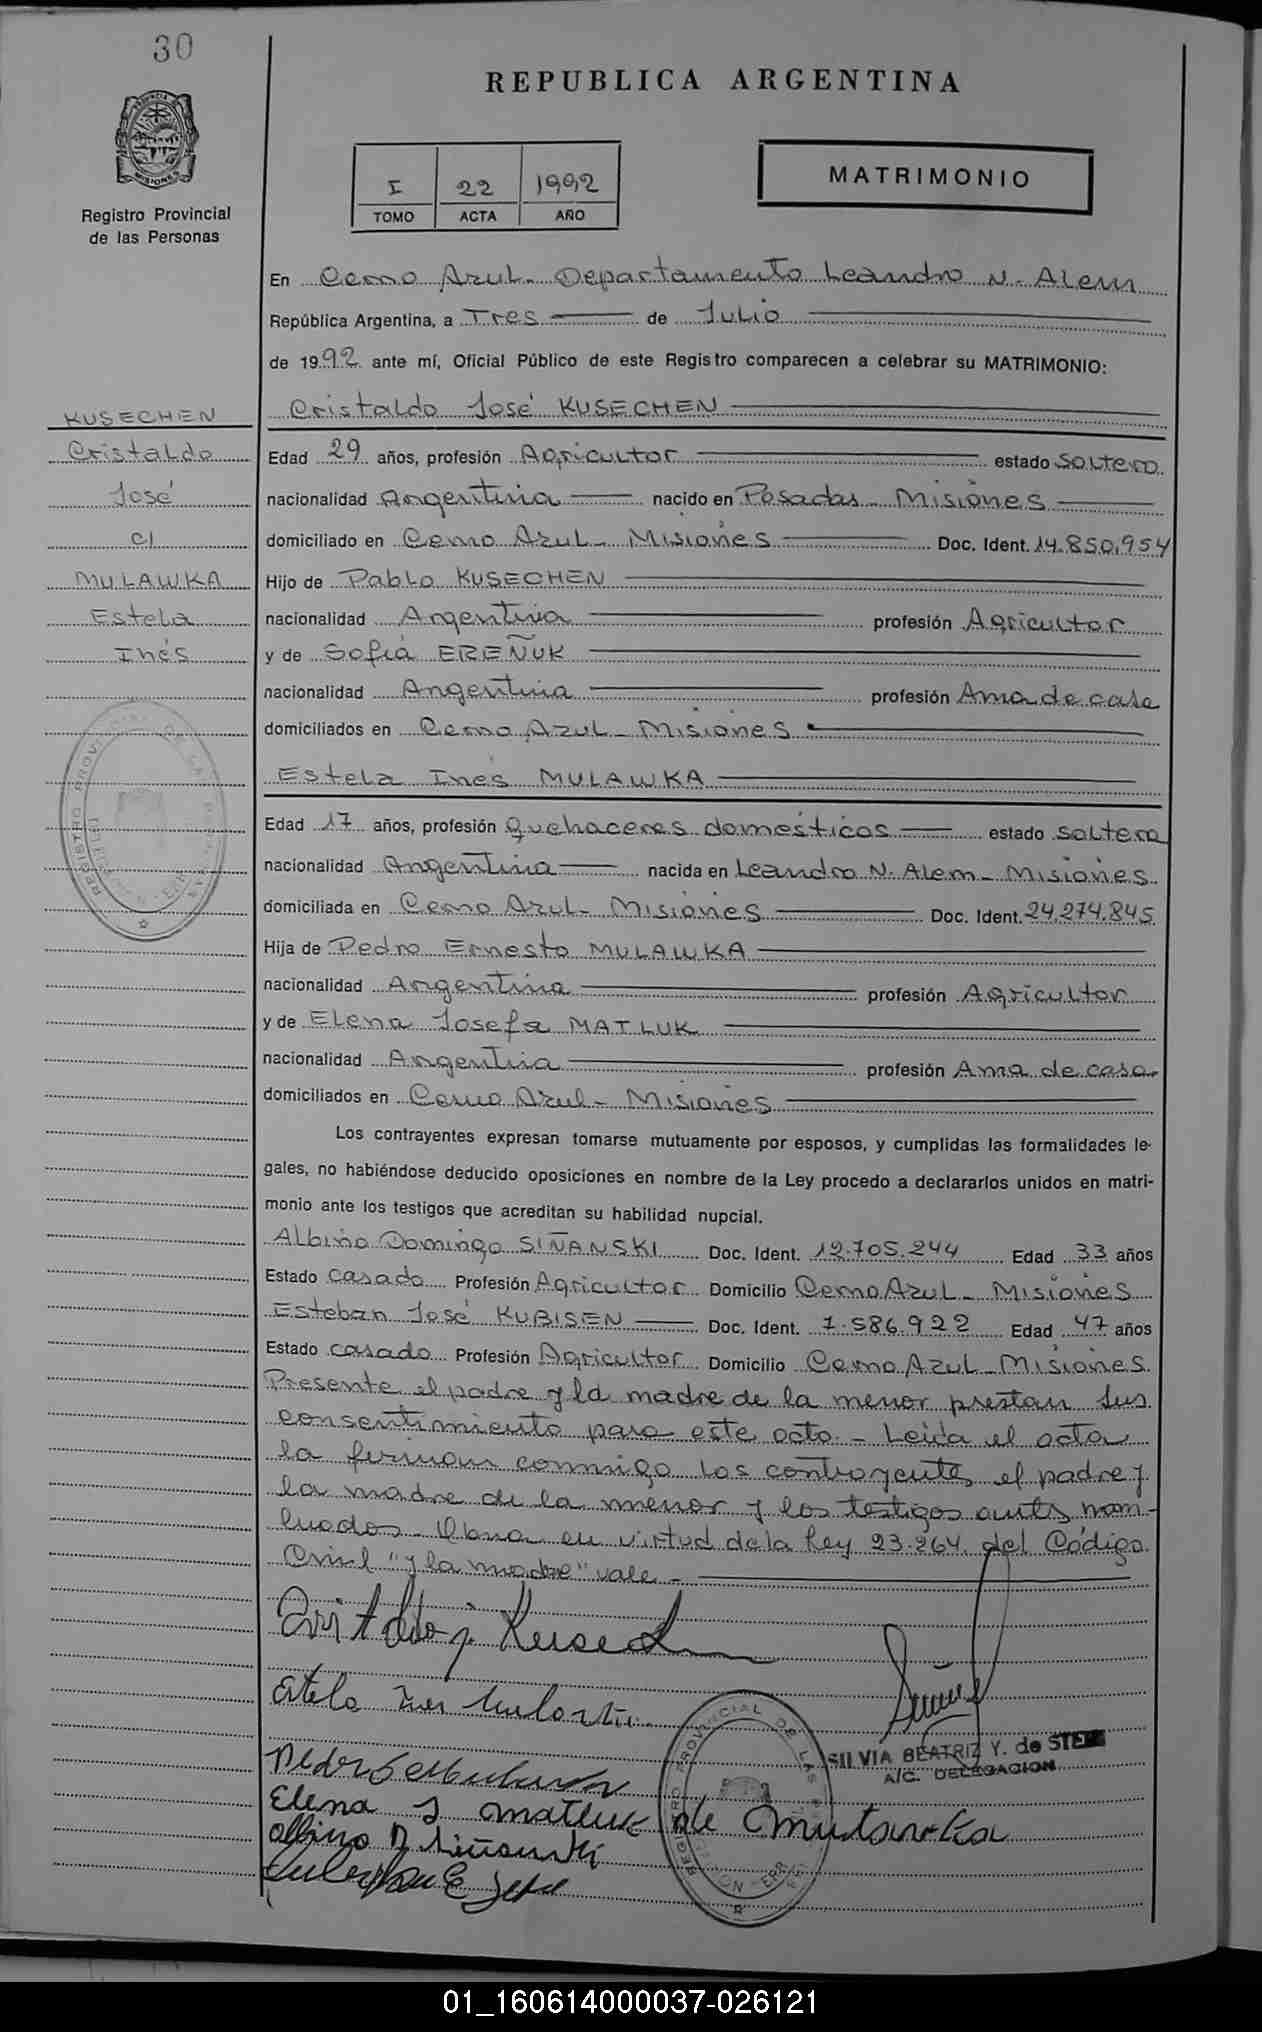 30
PROVINCIA DE
MISIONES
Registro Provincial
de las Personas
REPUBLICA ARGENTINA
I 22 1992
TOMO ACTA AÑO
MATRIMONIO
En Cerro Azul - Departamento Leandro N. Alem
República Argentina, a Tres de Julio
de 1992 ante mí, Oficial Público de este Registro comparecen a celebrar su MATRIMONIO:
Cristaldo José KUSECHEN
Edad 29 años, profesión Agricultor estado soltero
nacionalidad Argentina nacido en Posadas - Misiones
domiciliado en Cerro Azul - Misiones Doc. Ident. 14.850.954
Hijo de Pablo KUSECHEN
nacionalidad Argentina profesión Agricultor
y de Sofía EREÑUK
nacionalidad Argentina profesión Ama de casa
domiciliados en Cerro Azul - Misiones
Estela Inés MULAWKA
Edad 17 años, profesión quehaceres domésticos estado soltera
nacionalidad Argentina nacida en Leandro N. Alem - Misiones
domiciliada en Cerro Azul - Misiones Doc. Ident. 24.274.845
Hija de Pedro Ernesto MULAWKA
nacionalidad Argentina profesión Agricultor
y de Elena Josefa MATLUK
nacionalidad Argentina profesión Ama de casa
domiciliados en Cerro Azul - Misiones
Los contrayentes expresan tomarse mutuamente por esposos, y cumplidas las formalidades le-
gales, no habiéndose deducido oposiciones en nombre de la Ley procedo a declararlos unidos en matri-
monio ante los testigos que acreditan su habilidad nupcial.
Albino Domingo SIÑANSKI Doc. Ident. 12.705.244 Edad 33 años
Estado casado Profesión Agricultor Domicilio Cerro Azul - Misiones
Esteban José KUBISEN Doc. Ident. 7.586.922 Edad 47 años
Estado casado Profesión Agricultor Domicilio Cerro Azul - Misiones
Presente el padre y la madre de la menor prestan sus
consentimiento para este acto - Leída el acta
la firman conmigo los contrayentes, el padre y
la madre de la menor y los testigos antes nom-
brados - Obra en virtud de la Ley 23.264 del Código
Civil "y la madre" vale -
KUSECHEN
Cristaldo
José
c/
MULAWKA
Estela
Inés
REGISTRO PROVINCIAL DE LAS
Cristaldo J. Kusech
Estela Ines Mulawka
Pedro E Mulawka
Elena J Matluk de Mulawka
Albino D. Siñanski
SILVIA BEATRIZ Y. de
A/C. DELEGACION
REGISTRO PROVINCIAL DE LAS
01_160614000037-026121